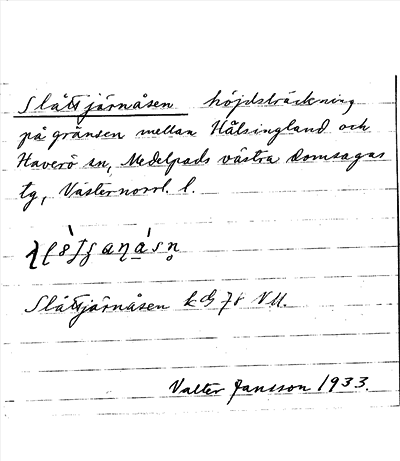 Slåttjärnåsen höjdsträckning
på gränsen mellan Hälsingland och
Haverö sn, Medelpads västra domsagas
tg, Västernorrl. l.
Slåttjärnåsen kbl 78 NV.
Valter Jansson 1933.